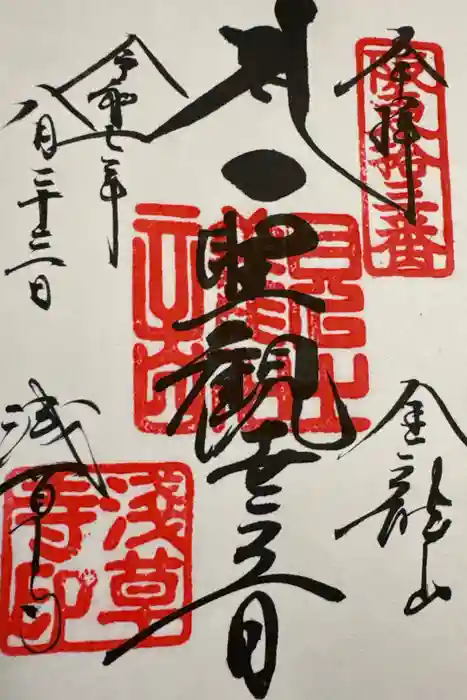 奉拝
坂東拾三番
金龍山
聖観世音
令和七年
八月二十三日
浅草寺
淺草寺印